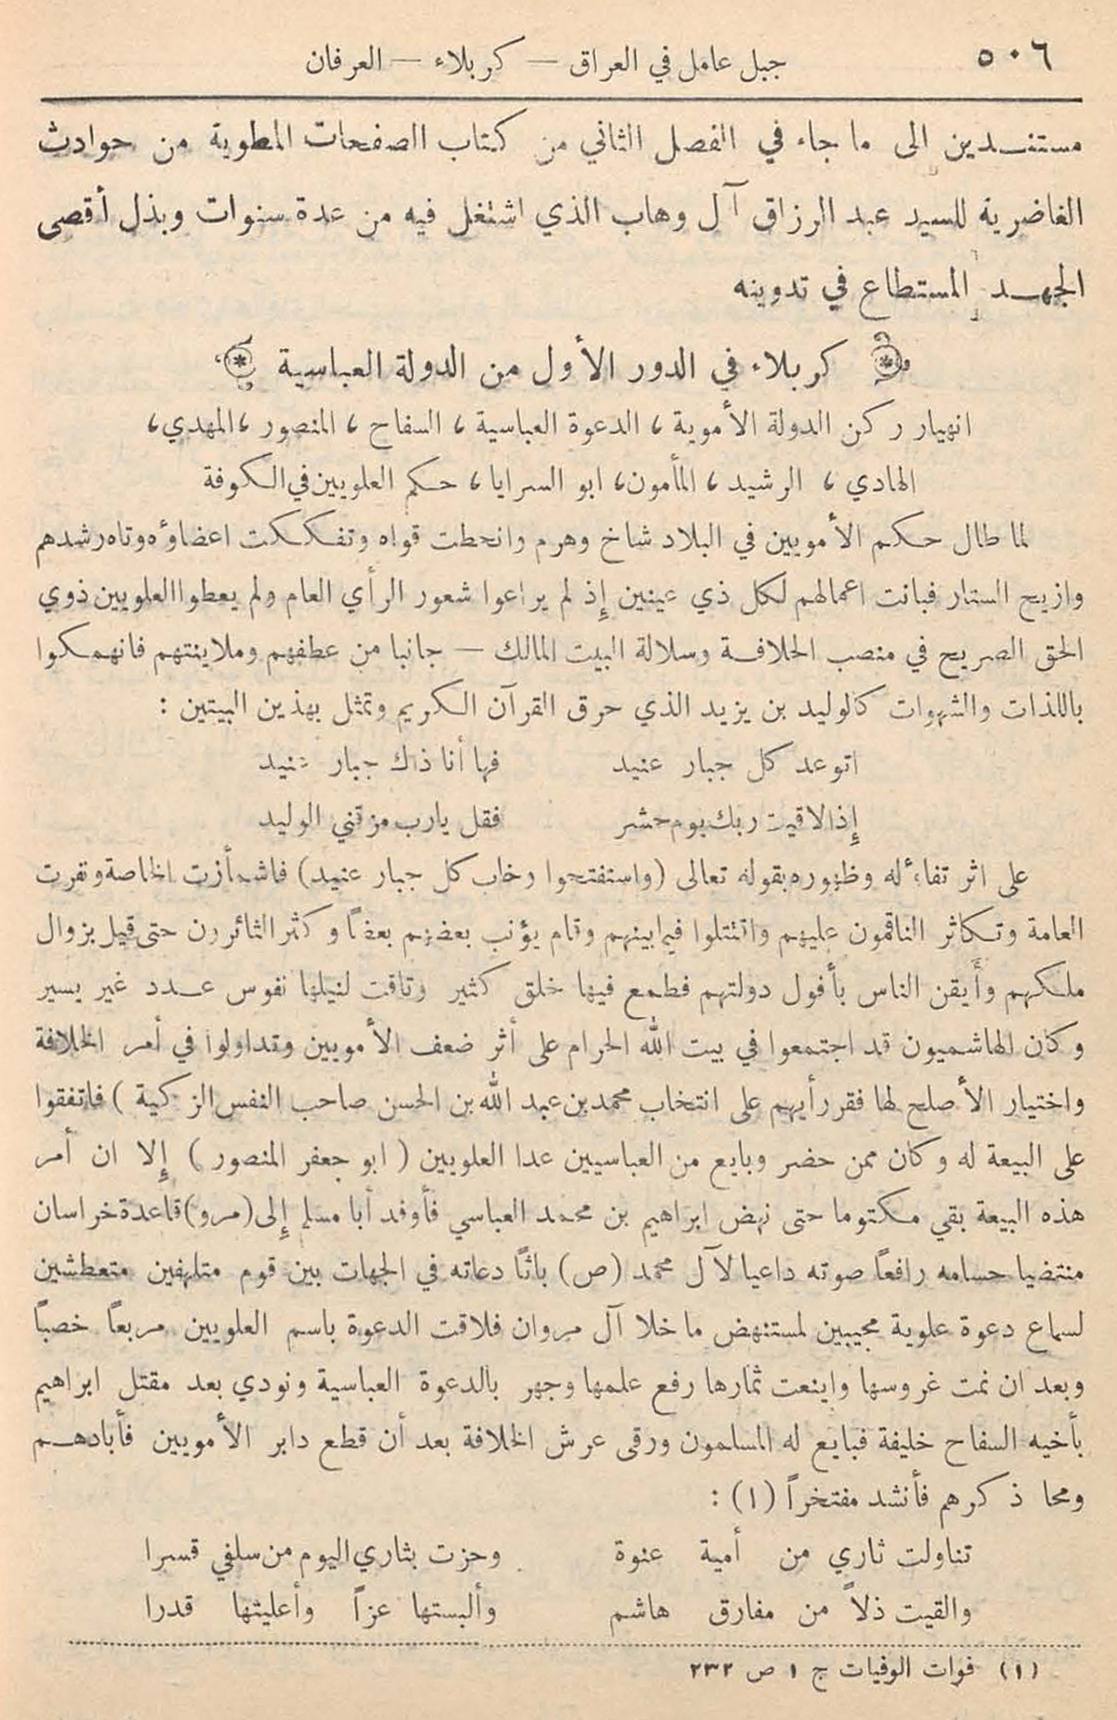 ٥٠٦
جبل عامل في العراق — كربلاء — العرفان
مستندين الى ما جاء في الفصل الثاني من كتاب الصفحات المطوية من حوادث
الغاضرية للسيد عبد الرزاق آل وهاب الذي اشتغل فيه من عدة سنوات وبذل أقصى
الجهد المستطاع في تدوينه
كربلاء في الدور الأول من الدولة العباسية
انهيار ركن الدولة الأموية ، الدعوة العباسية ، السفاح ، المنصور ، المهدي ،
الهادي ، الرشيد ، المأمون ، ابو السرايا ، حكم العلويين في الكوفة
لما طال حكم الأمويين في البلاد شاخ وهرم وانحطت قواه وتفككت اعضاؤه وتاه رشدهم
وازيح الستار فبانت اعمالهم لكل ذي عينين إذ لم يراعوا شعور الرأي العام ولم يعطوا العلويين ذوي
الحق الصريح في منصب الخلافة وسلالة البيت المالك — جانبا من عطفهم وملاينتهم فانهمكوا
باللذات والشهوات كالوليد بن يزيد الذي حرق القرآن الكريم وتمثل بهذين البيتين :
اتوعد كل جبار عنيد فها أنا ذاك جبار عنيد
إذا لاقيت ربك يوم حشر فقل يارب مزقني الوليد
على اثر تفاءله وظهوره بقوله تعالى (واستفتحوا وخاب كل جبار عنيد) فاشمأزت الخاصة ونفرت
العامة وتكاثر الناقمون عليهم واقتتلوا فيما بينهم وقام يؤنب بعضهم بعضاً وكثر الثائرون حتى قيل بزوال
ملكهم وأيقن الناس بأفول دولتهم فطمع فيها خلق كثير وتاقت لنيلها نفوس عدد غير يسير
وكان الهاشميون قد اجتمعوا في بيت الله الحرام على أثر ضعف الأمويين وتداولوا في أمر الخلافة
واختيار الأصلح لها فقر رأيهم على انتخاب محمد بن عبد الله بن الحسن صاحب النفس الزكية ) فاتفقوا
على البيعة له وكان ممن حضر وبايع من العباسيين عدا العلويين ( ابو جعفر المنصور ) إلا ان أمر
هذه البيعة بقي مكتوما حتى نهض ابراهيم بن محمد العباسي فأوفد أبا مسلم إلى (مرو) قاعدة خراسان
منتضيا حسامه رافعاً صوته داعيا لآل محمد (ص) باثاً دعاته في الجهات بين قوم متلهفين متعطشين
لسماع دعوة علوية مجيبين لمستنهض ما خلا آل مروان فلاقت الدعوة باسم العلويين مربعاً خصباً
وبعد ان نمت غروسها واينعت ثمارها رفع علمها وجهر بالدعوة العباسية ونودي بعد مقتل ابراهيم
بأخيه السفاح خليفة فبايع له المسلمون ورقى عرش الخلافة بعد أن قطع دابر الأمويين فأبادهم
ومحا ذكرهم فأنشد مفتخراً (١) :
تناولت ثاري من أمية عنوة وحزت بثاري اليوم من سلفي قسرا
والقيت ذلاً من مفارق هاشم وألبستها عزاً وأعليتها قدرا
(١) فوات الوفيات ج ١ ص ٢٣٢